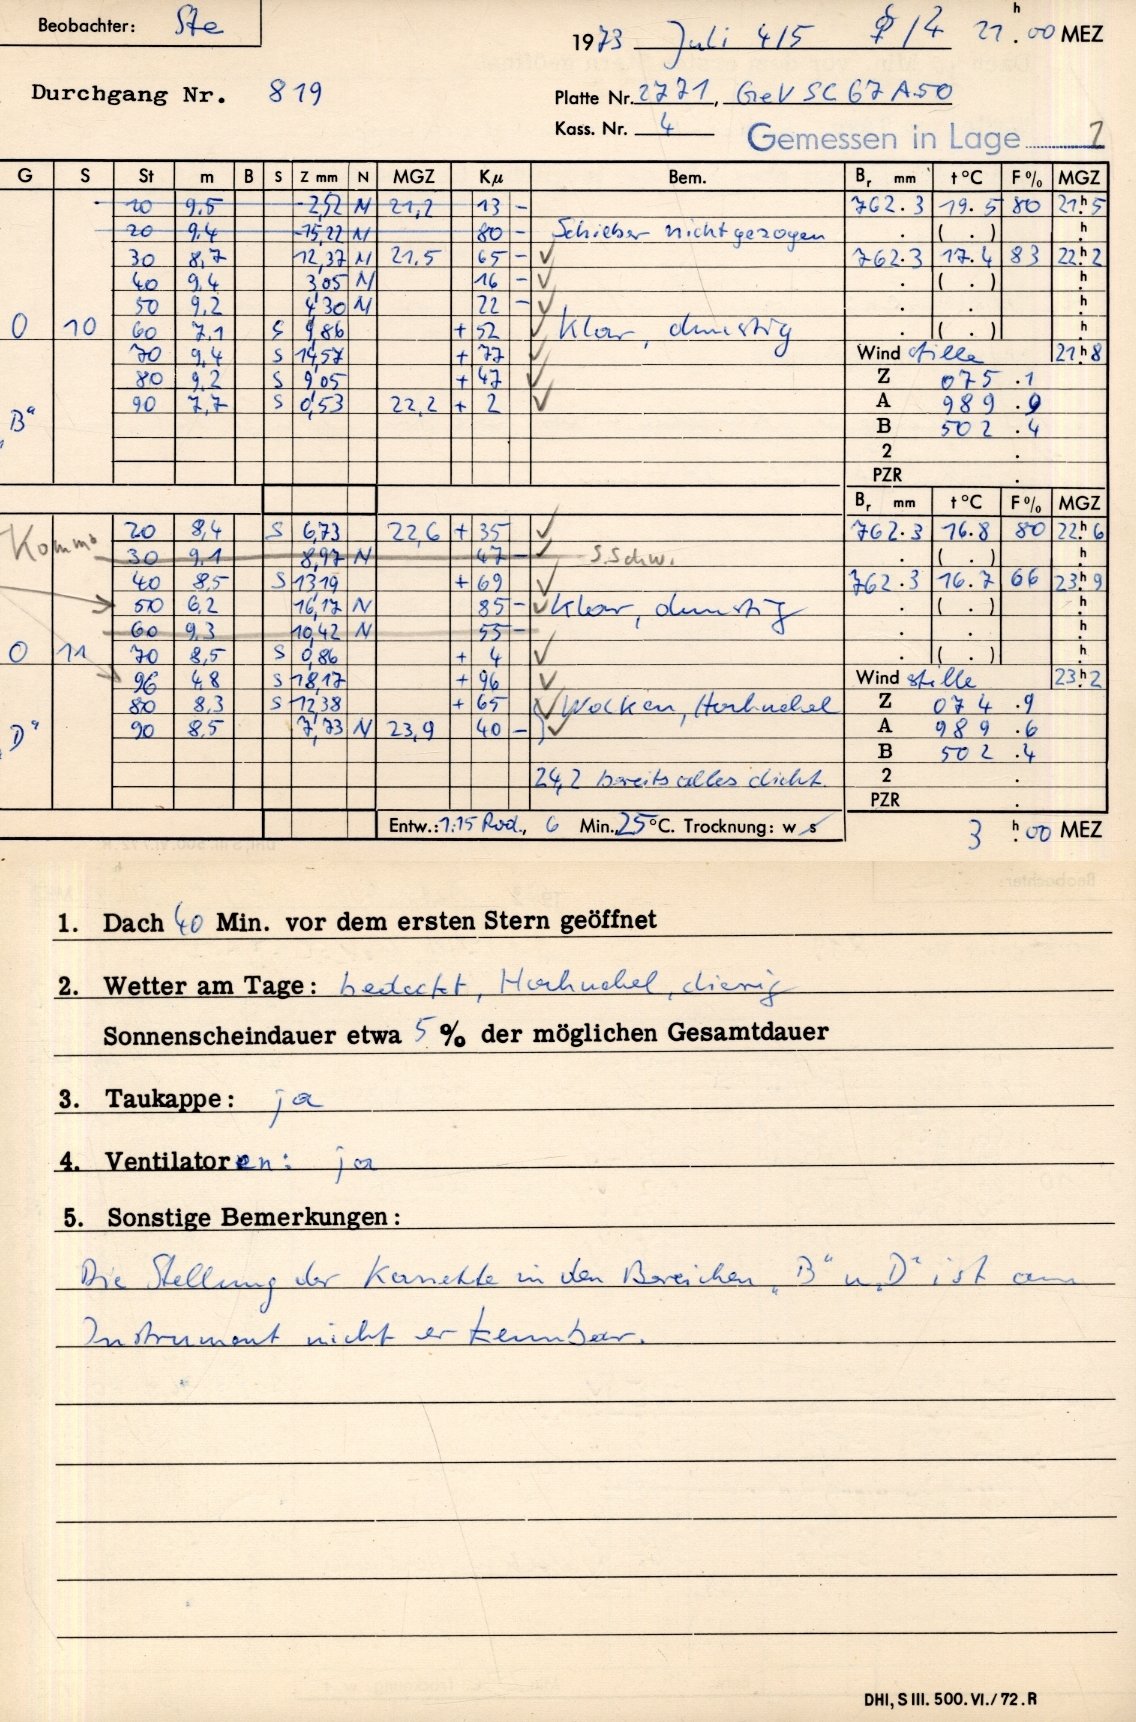 Beobachter: Ste
1973 Juli 4/5 21 h .00 MEZ
Durchgang Nr. 819
Platte Nr. 2771, GeV SC 67 A50
Kass. Nr. 4
Gemessen in Lage 1
G S St m B S Z mm N MGZ Kμ Bem. Br mm t °C F % MGZ
10 9,5 -2,52 N 21,2 13 - 762.3 19.5 80 21h5
20 9,4 -15,22 N 80 - Schieber nicht gezogen . ( . ) h
30 8,7 12,37 N 21.5 65 - ✓ 762.3 17.4 83 22h2
40 9,4 3,05 N 16 - ✓ . ( . ) h
50 9,2 4,30 N 22 - ✓ . . h
0 10 60 7,1 S 9,86 + 52 ✓ Klar, dunstig . ( . ) h
70 9,4 S 14,57 + 77 ✓ Wind stille 21h8
80 9,2 S 9,05 + 47 ✓ Z 075 .1
„B“ 90 7,7 S 0,53 22,2 + 2 ✓ A 989 .9
B 502 .4
2 .
PZR .
Br mm t °C F % MGZ
20 8,4 S 6,73 22,6 + 35 ✓ 762.3 16.8 80 22h6
30 9,1 8,97 N 47 - ✓ S.Schw. . ( . ) h
40 8,5 S 13,19 + 69 ✓ 762.3 16.7 66 23h9
50 6,2 16,17 N 85 - ✓ Klar, dunstig . ( . ) h
60 9,3 10,42 N 55 - . . h
0 11 70 8,5 S 0,86 + 4 ✓ . ( . ) h
96 4,8 S 18,17 + 96 ✓ Wind stille 23h2
80 8,3 S 12,38 + 65 ✓ Wolken, Hochnebel Z 074 .9
„D“ 90 8,5 7,73 N 23,9 40 - ✓ A 989 .6
B 502 .4
24,2 bereits alles dicht. 2 .
PZR .
Entw.: 1:15 Rod., 6 Min. 25 °C. Trocknung: w s 3 h .00 MEZ
1. Dach 40 Min. vor dem ersten Stern geöffnet
2. Wetter am Tage: bedeckt, Hochnebel, diesig
Sonnenscheindauer etwa 5 % der möglichen Gesamtdauer
3. Taukappe: ja
4. Ventilatoren: ja
5. Sonstige Bemerkungen:
Die Stellung der Kassette in den Bereichen „B“ u „D“ ist am
Instrument nicht erkennbar.
DHI, S III. 500. VI./ 72. R